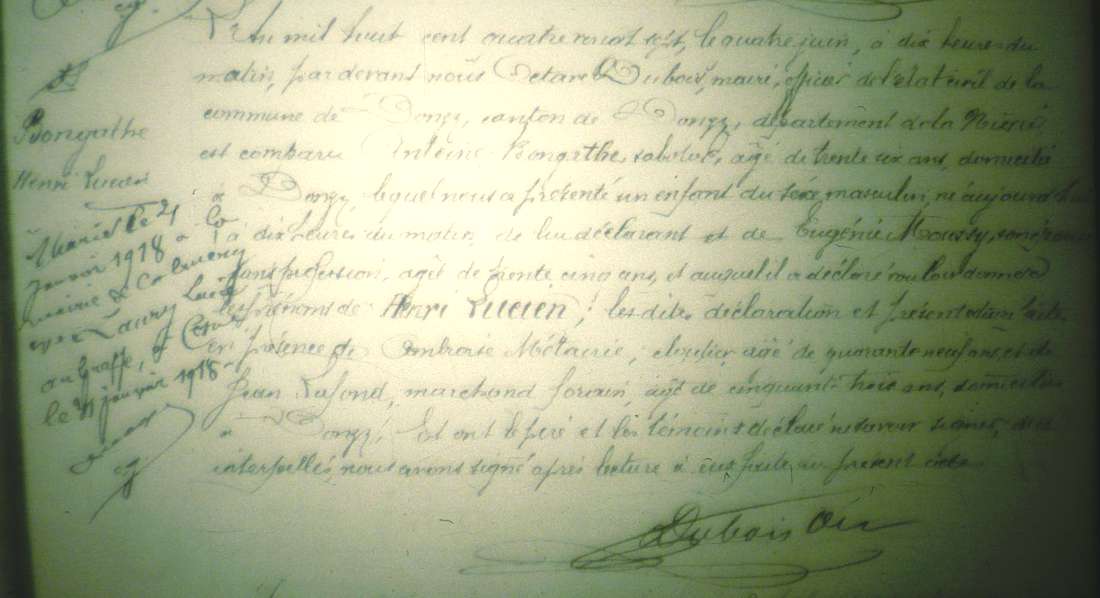 Bongathe
Henri Lucien
Marié le 21
janvier 1918 à Co
mairie de
avec
au Greffe, à Cosne
le 21 janvier 1918
L'An mil huit cent quatre vingt sept, le quatre juin, à dix heures du
matin, par devant nous Octave Dubois, maire, officier de l'état civil de la
commune de Donzy, canton de Donzy, département de la Nièvre
est comparu Antoine Bongathe, sabotier, âgé de trente six ans, domicilié
à Donzy lequel nous a présenté un enfant du sexe masculin, né aujourd'hui
à dix heures du matin, de lui déclarant et de Eugénie Moussy, son épouse
sans profession, âgée de trente cinq ans, et auquel il a déclaré vouloir donner
les prénoms de Henri Lucien; les dites déclaration et présentation faites
en présence de Ambroise Métairie, âgé de quarante neuf ans, et de
Jean Lafond, marchand forain, âgé de cinquante trois ans, domiciliés
à Donzy; Et ont le père et les témoins déclaré ne savoir signer, de ce
interpellés, nous avons signé après lecture à eux faite du présent acte.
Dubois Oct